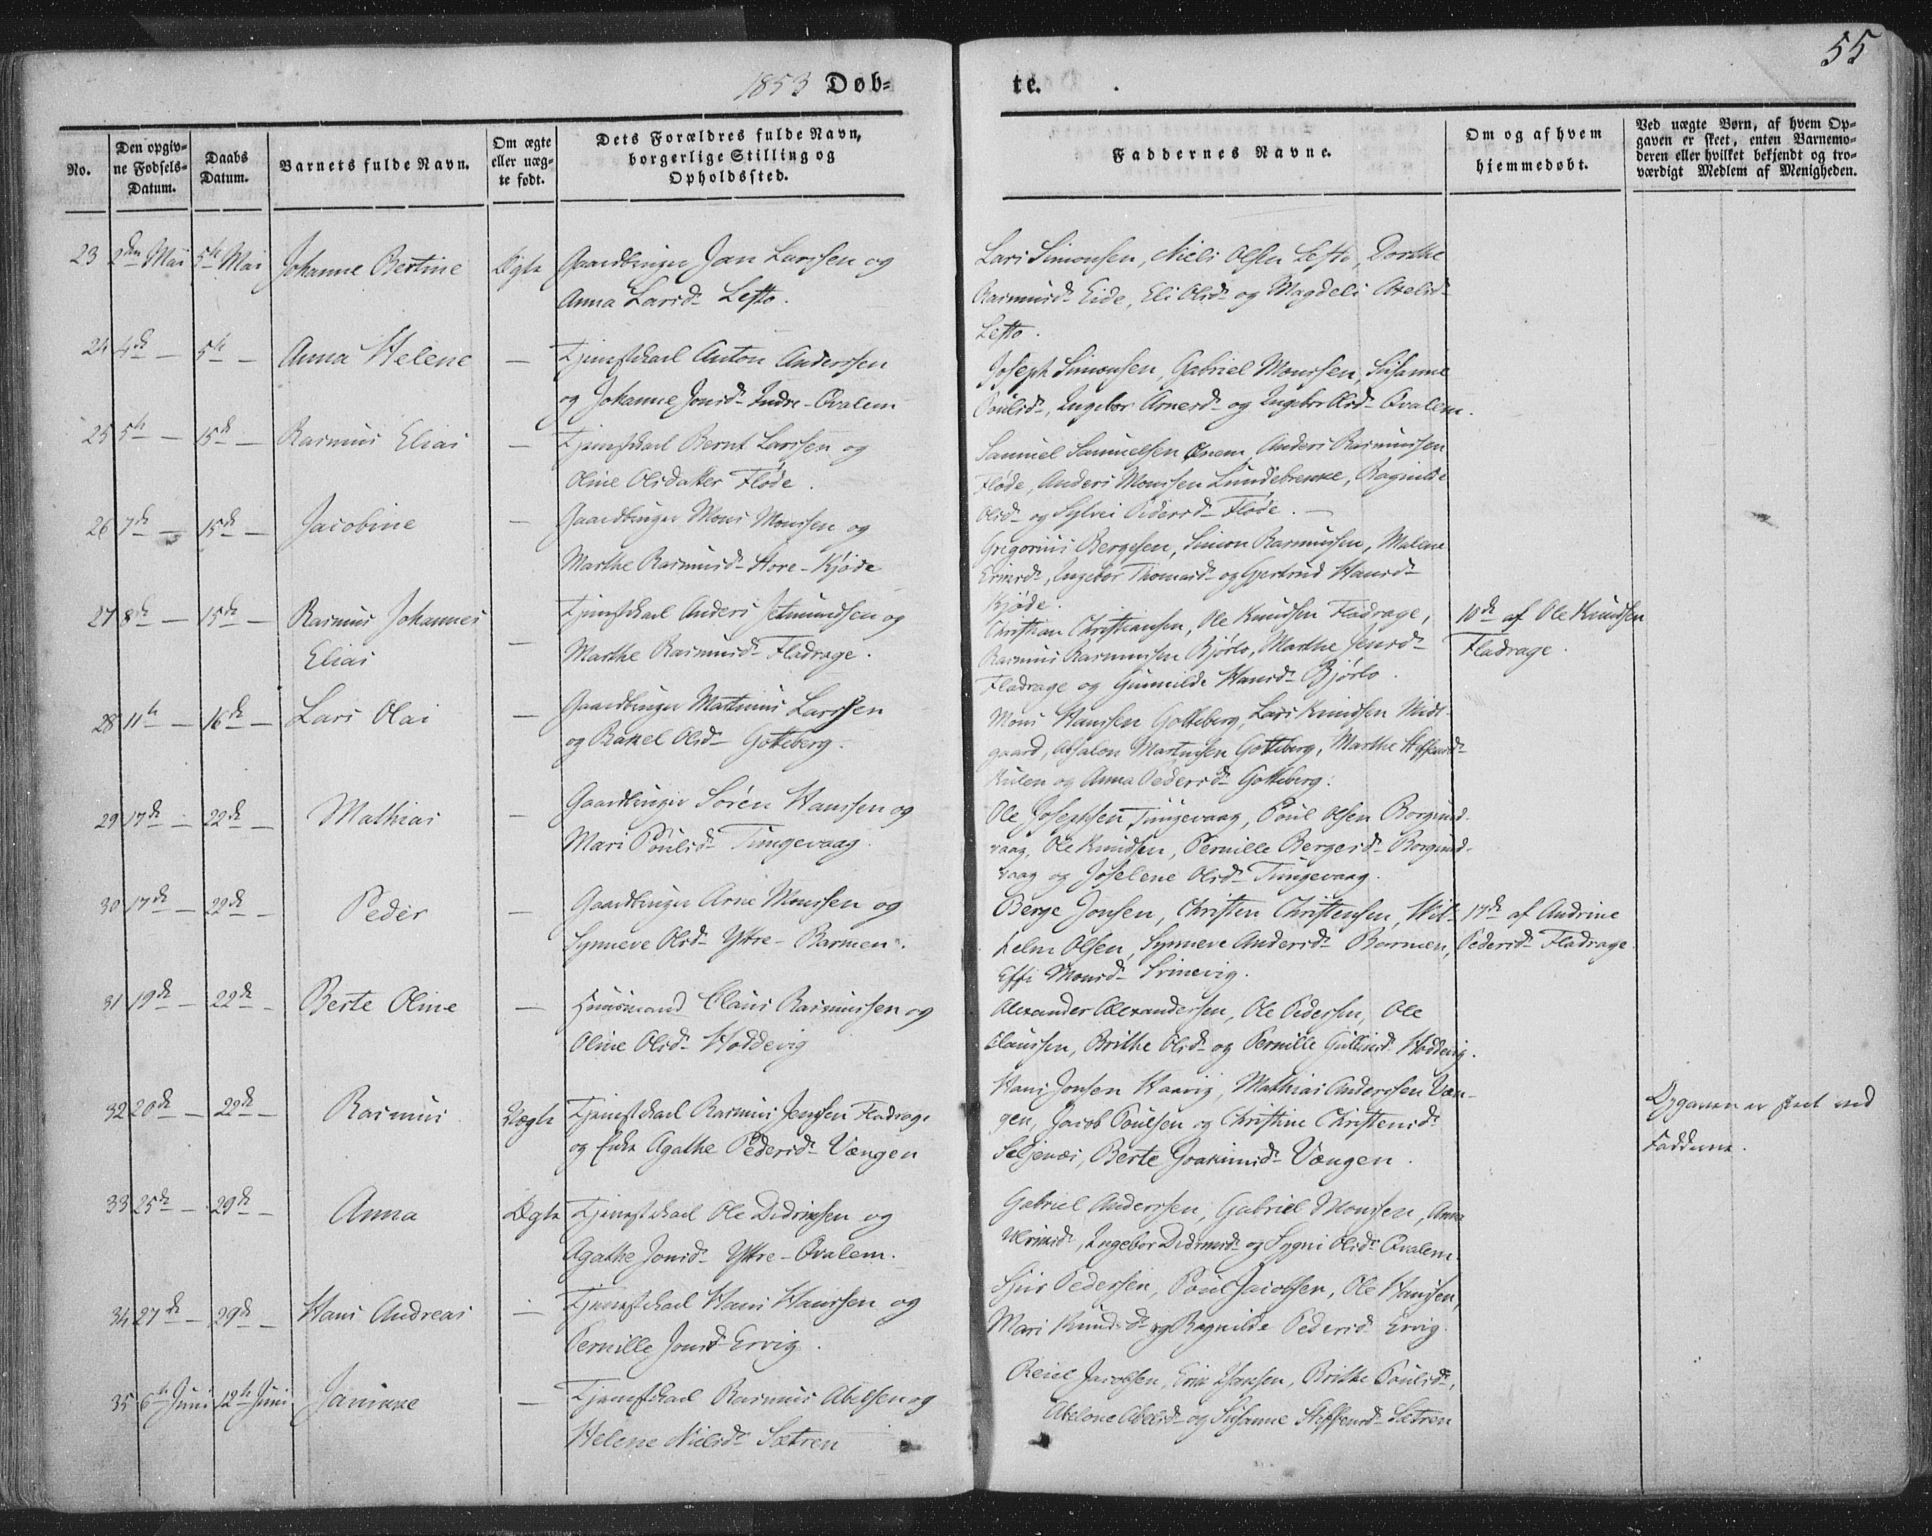 55
1853 Døb-
te.
No.
Den opgiv-
ne Fødsels-
Datum.
Daabs
Datum.
Barnets fulde Navn.
Om ægte
eller uæg-
te født.
Dets Forældres fulde Navn,
borgerlige Stilling og
Opholdssted.
Faddernes Navne.
Om og af hvem
hjemmedøbt.
Ved uægte Børn, af hvem Op-
gaven er skeet, enten Barnemo-
deren eller hvilket bekjendt og tro-
værdigt Medlem af Menigheden.
23 2den Mai 5te Mai Johanne Bertine Ægte Gaardbruger Jan Larssen og
Anna Larsd. Lefto.
Lars Simonsen, Niels Olsen Lefto, Dorthe
Rasmusd. Eide, Eli Olsd. og Magdeli Axelsd.
Lefto.
24 4de — 5te — Anna Helene — Tjenestekarl Anton Anderssen
og Johanne Jonsd. Indre-Qvalem
Joseph Simonsen, Gabriel Monssen, Susanne
Poulsd., Ingebor Arnesd. og Ingebor Olsd. Qvalem.
25 5te — 15de — Rasmus Elias — Tjenestekarl Bernt Larssen og
Oline Olsdatter Fløde.
Samuel Samuelsen, Anders Rasmussen
Fløde, Anders Monssen Lundebrekke, Ragnilde
Olsd. og Sylvei Pedersd. Fløde. —
26 7de — 15de — Jacobine — Gaardbruger Mons Monssen og
Marthe Rasmusd. Store-Kjøde
Gregorius Bergesen, Simon Rasmussen, Malene
Ingebor Thomasd. og Gjertrud Hansd.
Kjøde.
27 8de — 15de — Rasmus Johannes
Elias — Tjenestekarl Anders Jetmundsen og
Marthe Rasmusd. Fladrage.
Christian Christiansen, Ole Knudsen Fladrage,
Rasmus Rasmussen Bjørlo, Marthe Jensd.
Fladrage og Gunnilde Hansd. Bjørlo.
10de af Ole Knudsen
Fladrage.
28 11te — 16de — Lars Olai — Gaardbruger Martinus Larssen
og Rakel Olsd. Gotteberg.
Mons Hanssen Gotteberg, Lars Knudsen Midt-
gaard, Absalon Martinsen Gotteberg, Marthe Steffensd.
og Anna Pedersd. Gotteberg.
29 17de — 22de — Mathias — Gaardbruger Søren Hanssen og
Mari Poulsd. Tungevaag.
Ole Josephsen Tungevaag, Poul Olsen Borgund-
vaag, Ole Knudsen, Pernille Bergesd. Borgund-
vaag og Joselene Olsd. Tungevaag.
30 17de — 22de — Peder — Gaardbruger Arne Monssen og
Synneve Olsd. Ytre-Barmen.
Berge Jonsen, Christen Christensen, Wil-
helm Olsen, Synneve Andersd. Barmen,
Effi Monsd.
17de af Andrine
Pedersd. Fladrage
31 19de — 22de — Berte Oline — Huusmand Claus Rasmussen og
Oline Olsd. Hoddevig
Alexander Alexandersen, Ole Pedersen, Ole
Claussen, Brithe Olsd. og Pernille Gulliksd. Hoddevig.
32 20de — 22de — Rasmus Uægte Tjenestekarl Rasmus Jenssen Fladrage
og Enke Agathe Pedersd. Vængen
Hans Jonsen Haavig, Mathias Anderssen Væn-
gen, Jacob Poulsen og Christine Christensd.
Seljenæs, Berte Joakimsd. Vængen.
Opgaven er skeet ved
Fadderne.
33 25de — 29de — Anna Ægte Tjenestekarl Ole Didriksen og
Agathe Jonsd. Ytre-Qvalem.
Gabriel Anderssen, Gabriel Monssen, Anna
Ulriksd., Ingebor Didriksd. og Sygni Olsd. Qvalem.
34 27de — 29de — Hans Andreas — Tjenestekarl Hans Hanssen og
Pernille Jonsd. Ervig.
Sjur Pedersen, Poul Jacobsen, Ole Hanssen,
Mari Knudsd. og Ragnilde Pedersd. Ervig.
35 6te Juni 12te Juni Janikke — Tjenestekarl Rasmus Abelsen og
Helene Nielsd. Sætren
Reiel Jacobsen, Erik Hansen, Brithe Poulsd.,
Abelone Abelsd. og Susanne Steffensd. Sætren